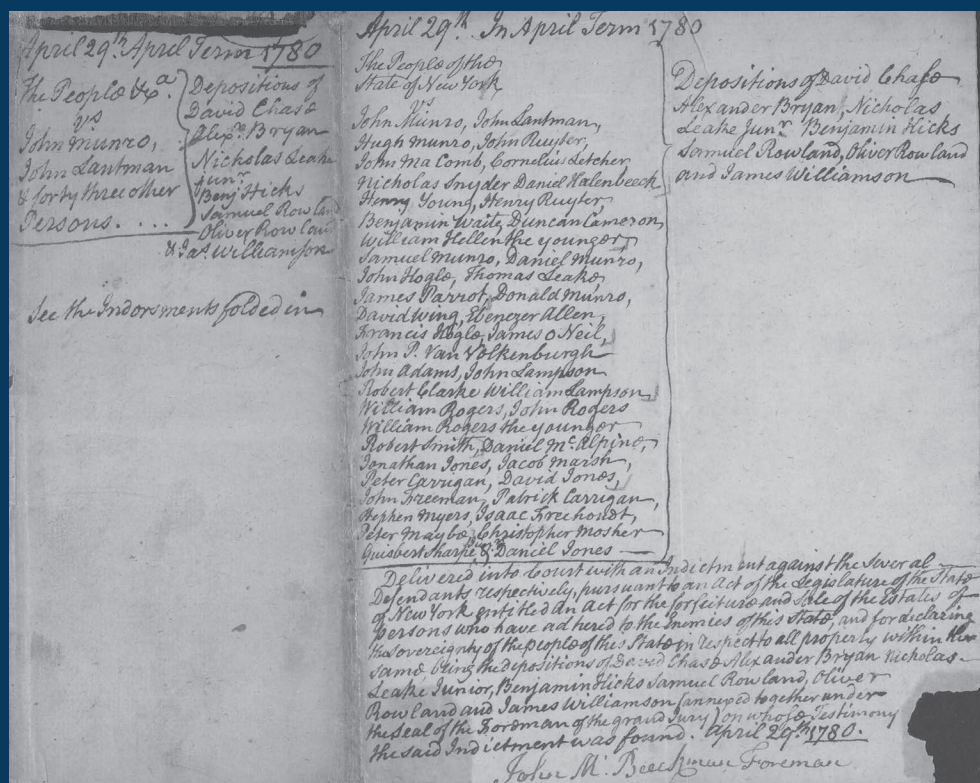 April 29th. April Term 1780
The People &ca.
vs
John Munro,
John Lantman
& forty three other
Persons. . . . .
Depositions of
David Chase
Alexr. Bryan
Nicholas Leake
junr.
Benj Hicks
Samuel Rowland
Oliver Rowland
& Jas. Williamson
See the Indorsments folded in
April 29th. In April Term 1780
The People of the
State of New York
vs
John Munro, John Lantman,
Hugh Munro, John Ruyter,
John Ma Comb, Cornelius Letcher
Nicholas Snyder Daniel Halenbeeck
Henry Young, Henry Ruyter
Benjamin Waite, Duncan Cameron
William Hellen the younger
Samuel Munro, Daniel Munro,
John Hogle, Thomas Leake,
James Parrot, Donald Munro,
David Wing, Ebenezer Allen,
Francis Hogle, James O Neil,
John P. Van Volkenburgh
John Adams, John Lampson
Robert Clarke William Lampson,
William Rogers, John Rogers
William Rogers the younger
Robert Smith, Daniel Mc. Alpine,
Jonathan Jones, Jacob Marsh,
Peter Carrigan, David Jones,
John Freeman, Patrick Carrigan,
Stephen Myers, Isaac Frehoudt,
Peter Maybe, Christopher Mosher
Guisbert Sharpe & Daniel Jones —
Depositions of David Chase
Alexander Bryan, Nicholas
Leake Junr. Benjamin Hicks
Samuel Rowland, Oliver Rowland
and James Williamson —
Delivered into Court with an Indictment against the several
Defendants respectively, pursuant to an Act of the Legislature of the State
of New York entitled An Act for the forfeiture and Sale of the Estates of
persons who have adhered to the Enemies of this State, and for declaring
the sovereignty of the people of this State in respect to all property within the
same, being the depositions of David Chase Alexander Bryan Nicholas
Leake Junior, Benjamin Hicks Samuel Rowland, Oliver
Rowland and James Williamson (annexed together under
the seal of the Foreman of the grand Jury) on whose Testimony
the said Indictment was found. April 29th 1780.
John M. Beeckman Foreman